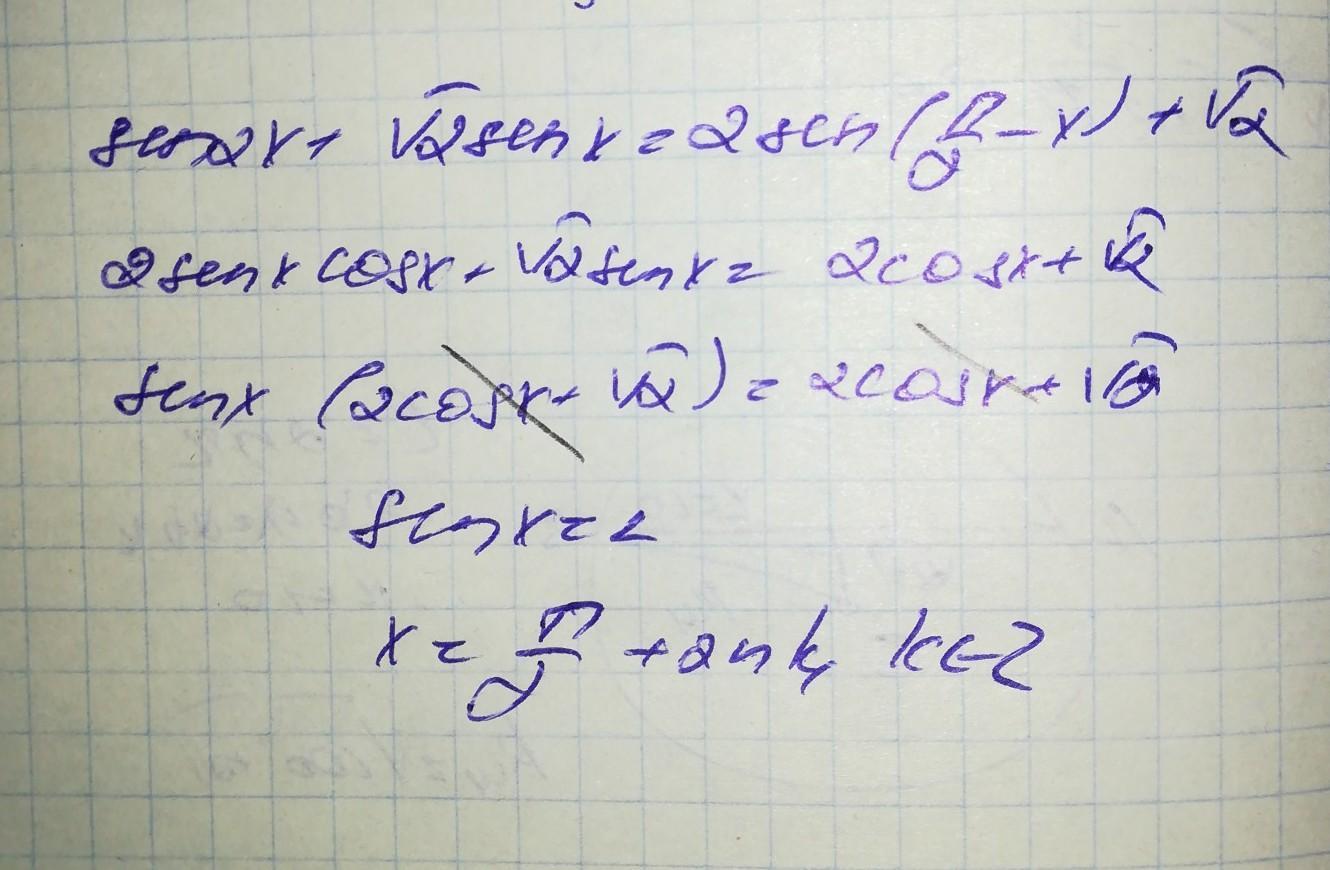 sin2x + √2 sin x = 2 sin (π/2 - x) + √2
2 sin x cosx + √2 sin x = 2 cosx + √2
sin x (2 cosx + √2) = 2 cosx + √2
sin x = 1
x = π/2 + 2πk, k∈Z